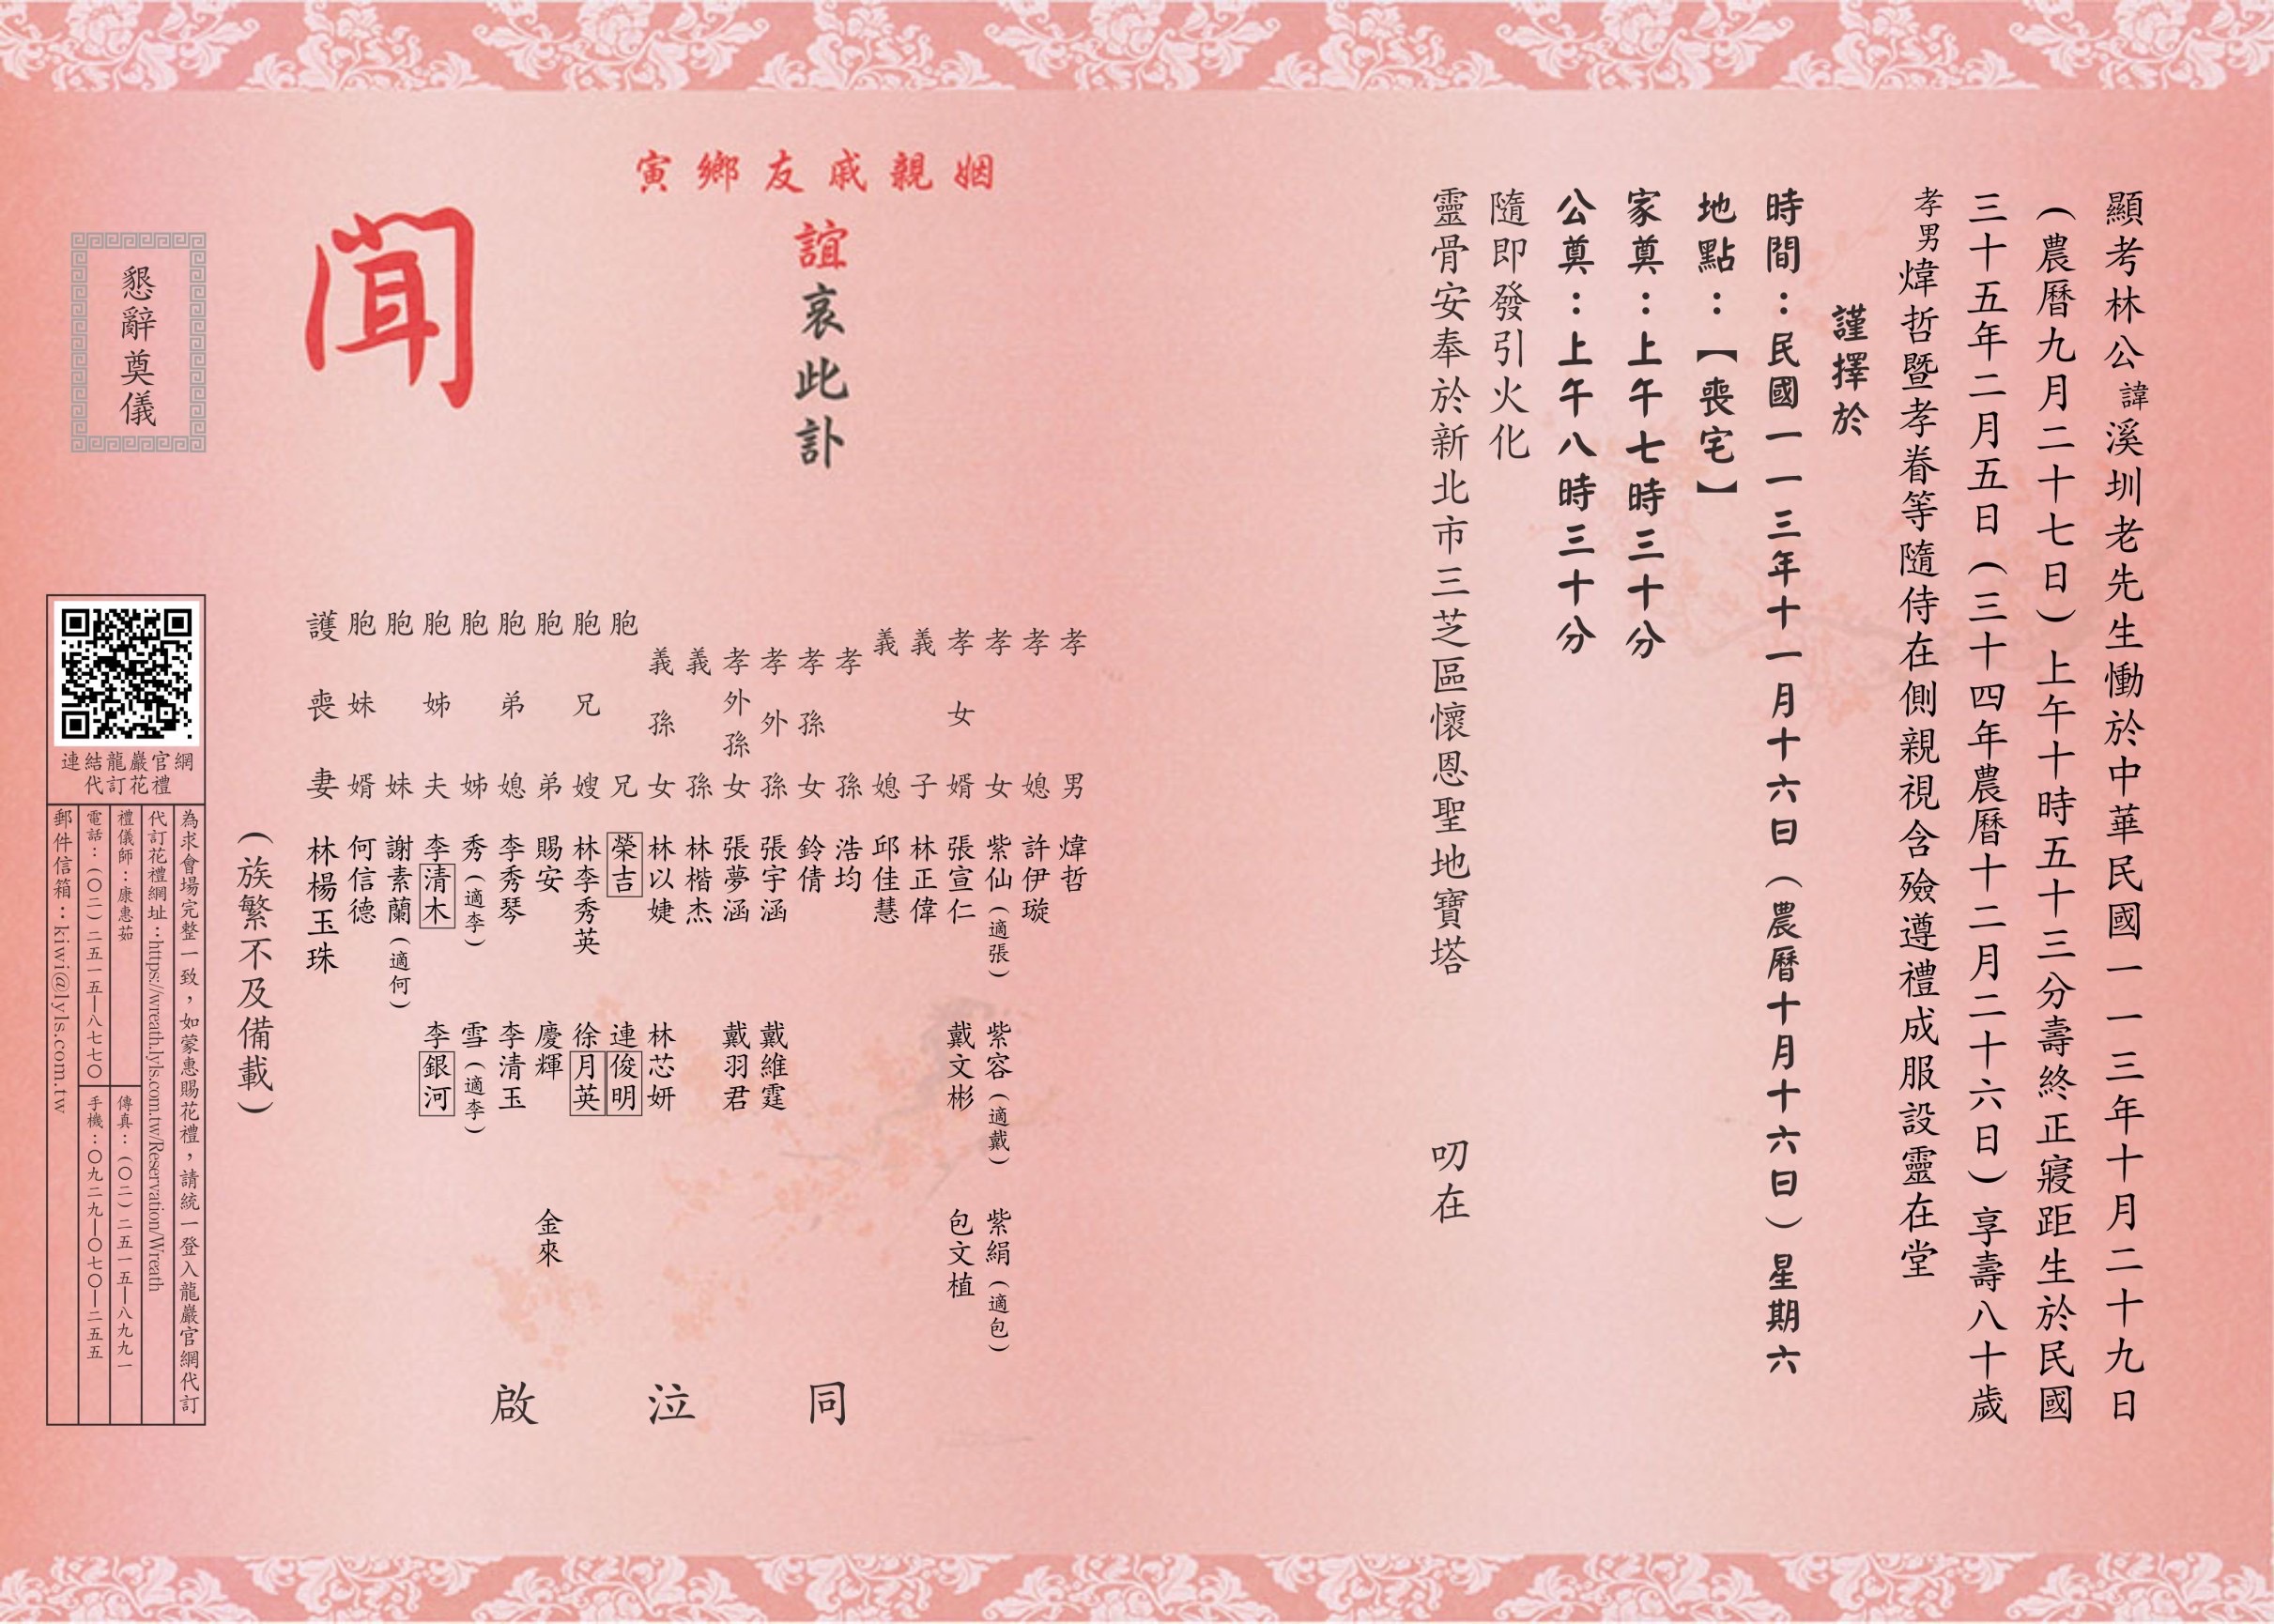 顯考林公諱溪圳老先生慟於中華民國一一三年十月二十九日
（農曆九月二十七日）上午十時五十三分壽終正寢距生於民國
三十五年二月五日（三十四年農曆十二月二十六日）享壽八十歲
孝男煒哲暨孝眷等隨侍在側親視含殮遵禮成服設靈在堂
謹擇於
時間：民國一一三年十一月十六日（農曆十月十六日）星期六
地點：【喪宅】
家奠：上午七時三十分
公奠：上午八時三十分
隨即發引火化
靈骨安奉於新北市三芝區懷恩聖地寶塔 叨在
姻親戚友鄉寅
誼哀此訃
聞
孝男 煒哲
孝媳 許伊璇
孝女 紫仙（適張） 紫容（適戴） 紫絹（適包）
孝女婿 張宣仁 戴文彬 包文植
義子 林正偉
義媳 邱佳慧
孝孫 浩均
孝孫女 鈴倩
孝外孫 張宇涵 戴維霆
孝外孫女 張夢涵 戴羽君
義孫 林楷杰
義孫女 林以婕 林芯妍
胞兄 榮吉 連俊明
胞兄嫂 林李秀英 徐月英
胞弟 賜安 慶輝 金來
胞弟媳 李秀琴 李清玉
胞姊 秀（適李） 雪（適李）
胞姊夫 李清木 李銀河
胞妹 謝素蘭（適何）
胞妹婿 何信德
護喪妻 林楊玉珠
同泣啟
（族繁不及備載）
懇辭奠儀
連結龍巖官網
代訂花禮
為求會場完整一致，如蒙惠賜花禮，請統一登入龍巖官網代訂
代訂花禮網址：https://wreath.lyls.com.tw/Reservation/Wreath
禮儀師：康惠茹
傳真：（〇二）二五一五—八九九一
電話：（〇二）二五一五—八七七〇
手機：〇九二九—〇七〇—二五五
郵件信箱：kiwi@lyls.com.tw